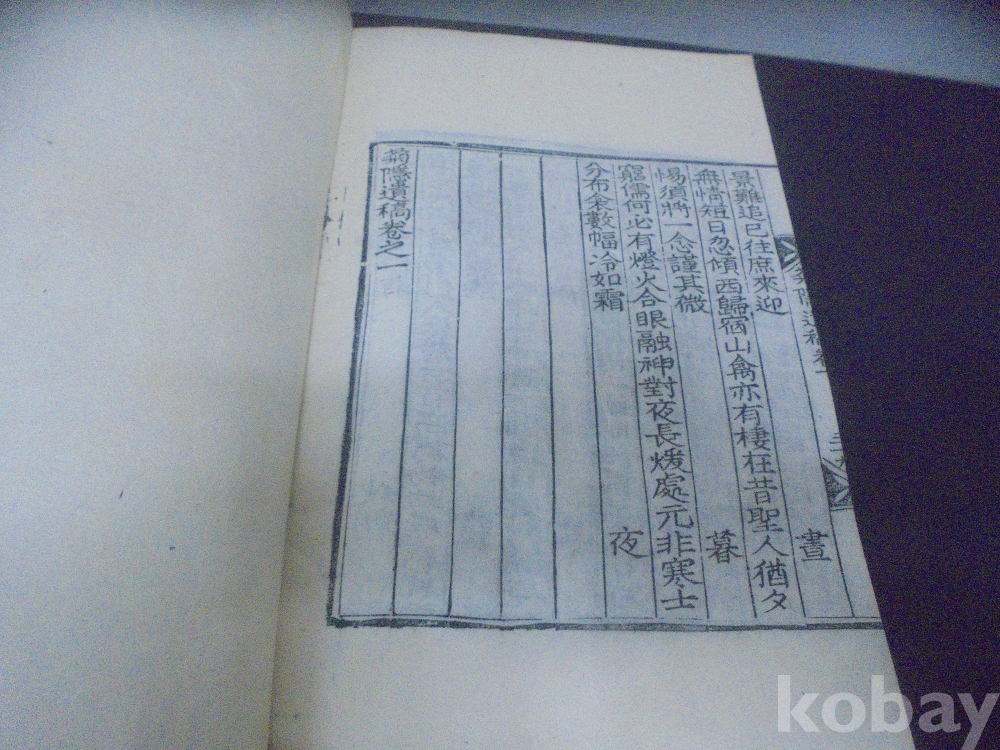 菊隱遺稿卷一
景難追已徃庶來迎
晝
無情短日忽傾西歸宿山禽亦有棲在昔聖人猶夕
惕須將一念謹其微
暮
窮儒何必有燈火合眼融神對夜長煖處元非寒士
分布衾數幅冷如霜
夜
菊隱遺稿卷之一
kobay